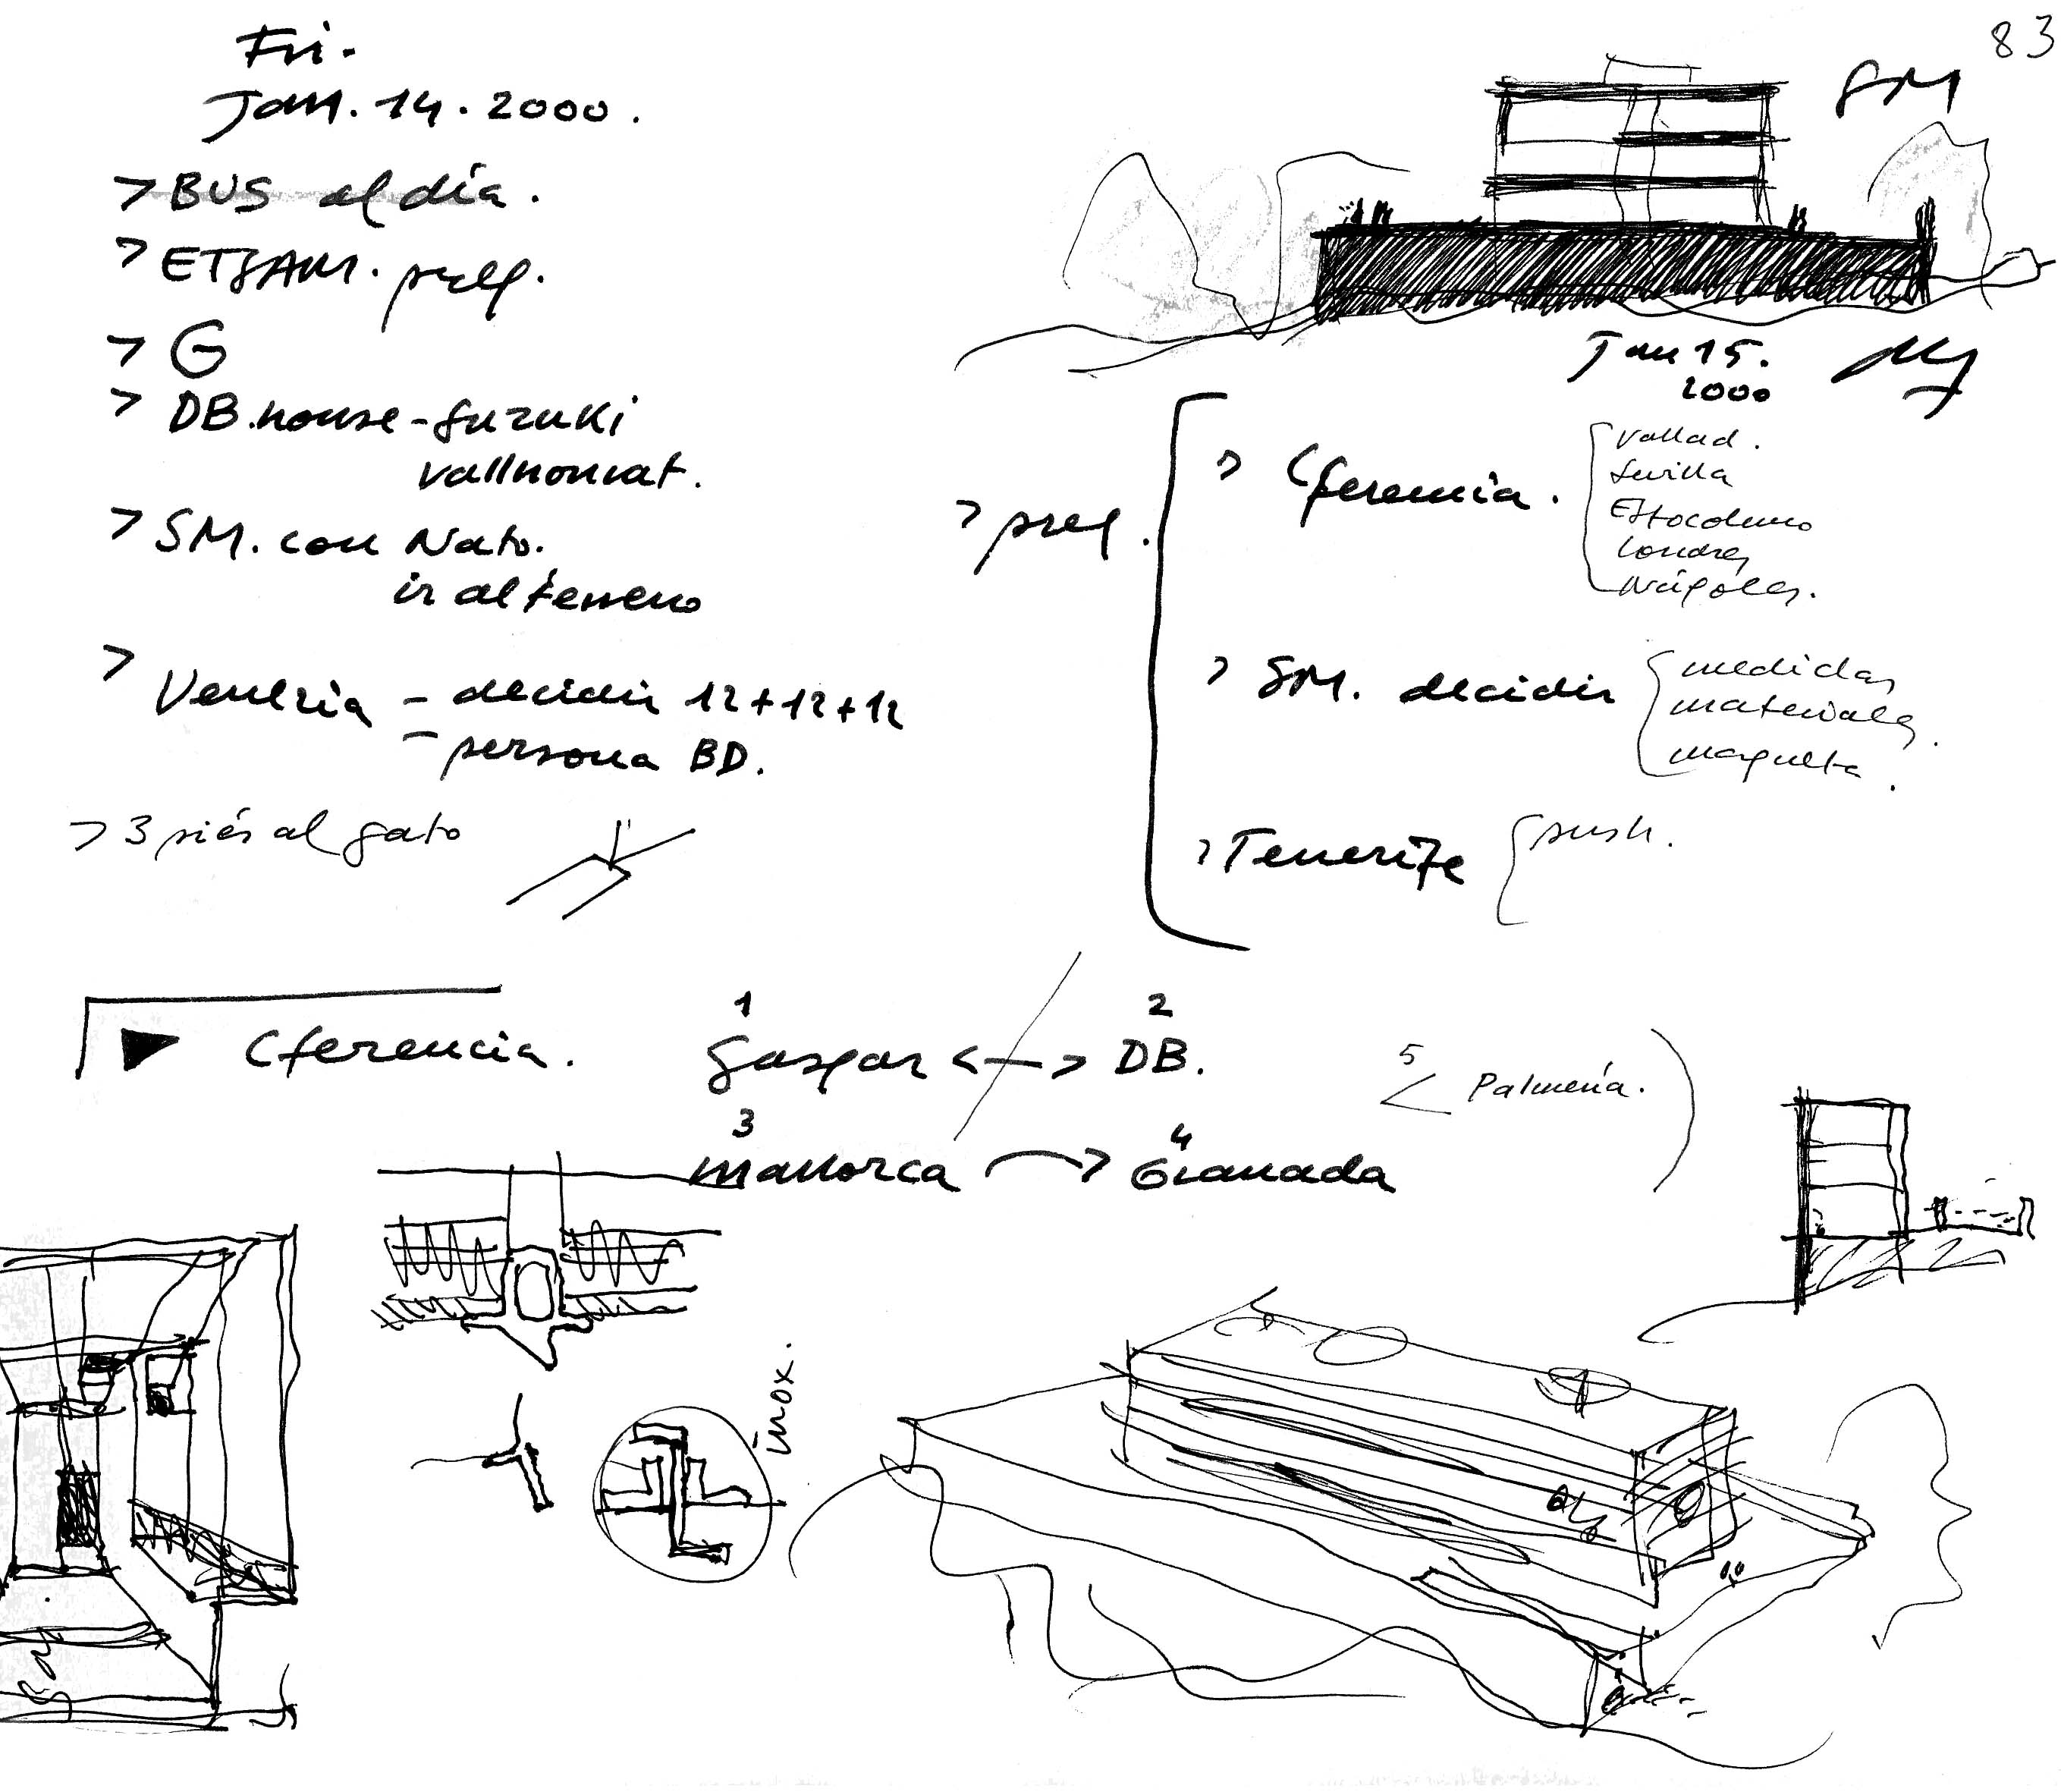 83
Fri.
Jan. 14. 2000.
> BUS al día.
> ETSAM. prep.
> G
> DB.house - Suzuki
> SM. con Nato.
ir al terreno
> Venezia – decidir 12+12+12
– persona BD.
> 3 piés al gato
SM
Jan 15.
2000
> prep.
> Cferencia.
Vallad.
Sevilla
Estocolmo
Londres
Nápoles.
> SM. decidir
medidas
materiales.
maqueta.
> Tenerife
push.
Cferencia.
1
2
Gaspar <—> DB.
5
< Palmería.
3
4
Mallorca → Granada
inox.